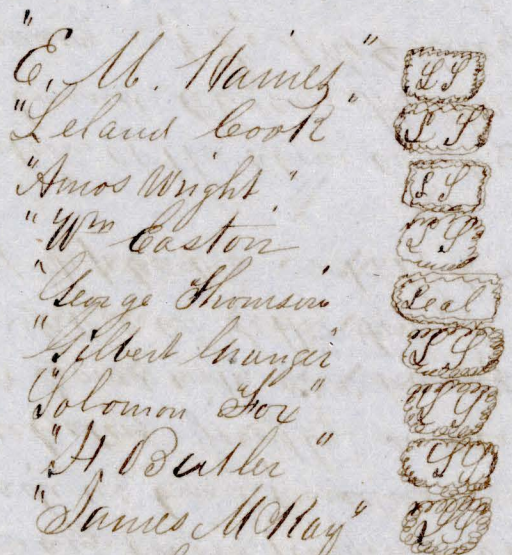 "E. M. Haines" L S
"Leland Cook" L S
"Amos Wright" L S
"Wm Easton L S
"George Thomson Seal
"Gilbert Granger L S
"Solomon Fox" L S
"H Butler" L S
"James McKay" L S